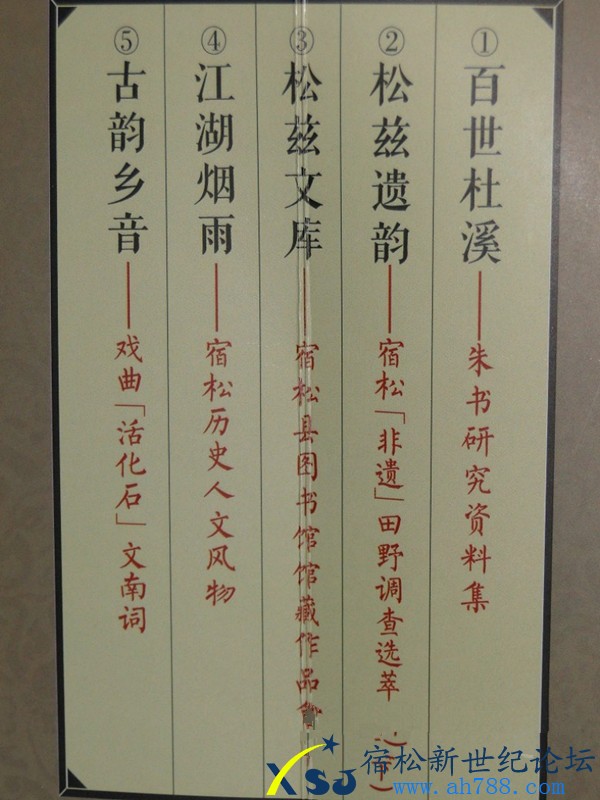 ①百世杜溪——朱书研究资料集
②松兹遗韵——宿松「非遗」田野调查选萃
③松兹文库——宿松县图书馆馆藏作品
④江湖烟雨——宿松历史人文风物
⑤古韵乡音——戏曲「活化石」文南词
XSJ 宿松新世纪论坛
www.ah788.com